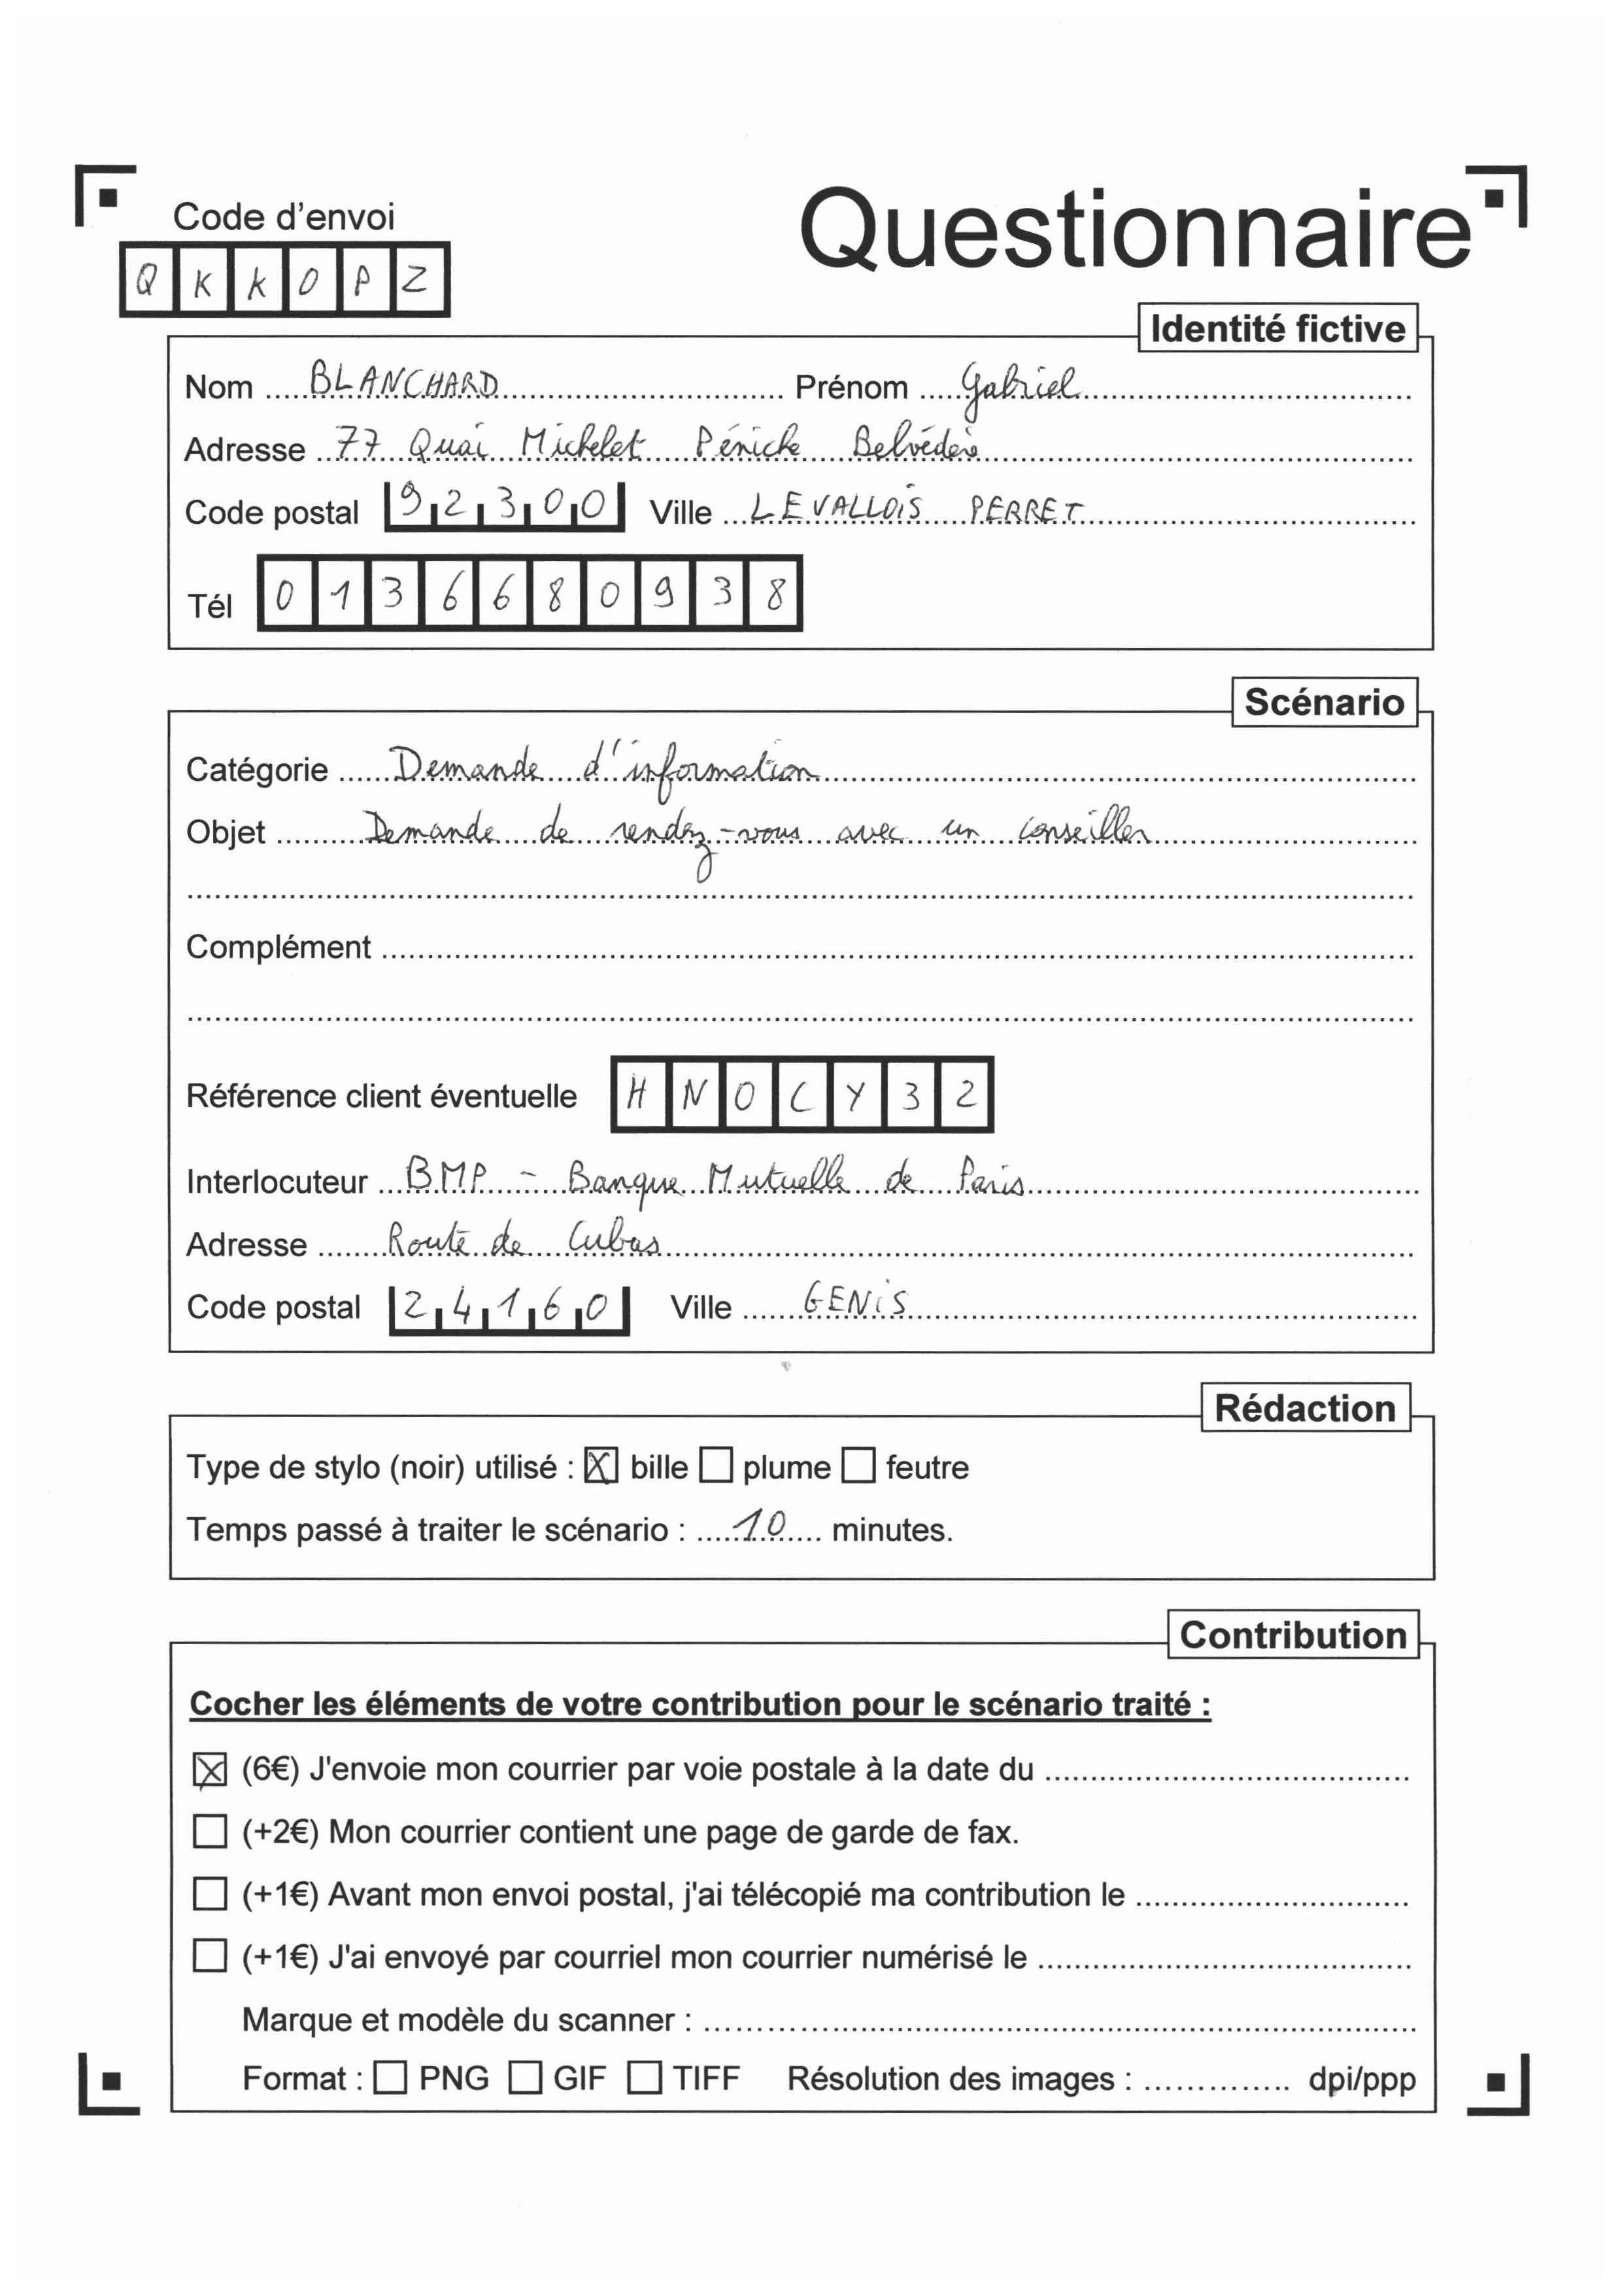 Code d'envoi
Questionnaire
Q K K O P Z
Identité fictive
Nom BLANCHARD Prénom Gabriel
Adresse 77 Quai Michelet Péniche Belvédère
Code postal 92300 Ville LEVALLOIS PERRET
Tél 0136680938
Scénario
Catégorie Demande d'information
Objet Demande de rendez-vous avec un conseiller
Complément
Référence client éventuelle HNOCY32
Interlocuteur BMP - Banque Mutuelle de Paris
Adresse Route de Cubas
Code postal 24160 Ville GENIS
Rédaction
Type de stylo (noir) utilisé : ☒ bille ☐ plume ☐ feutre
Temps passé à traiter le scénario : 10 minutes.
Contribution
Cocher les éléments de votre contribution pour le scénario traité :
☒ (6€) J'envoie mon courrier par voie postale à la date du
☐ (+2€) Mon courrier contient une page de garde de fax.
☐ (+1€) Avant mon envoi postal, j'ai télécopié ma contribution le
☐ (+1€) J'ai envoyé par courriel mon courrier numérisé le
Marque et modèle du scanner :
Format : ☐ PNG ☐ GIF ☐ TIFF Résolution des images : dpi/ppp